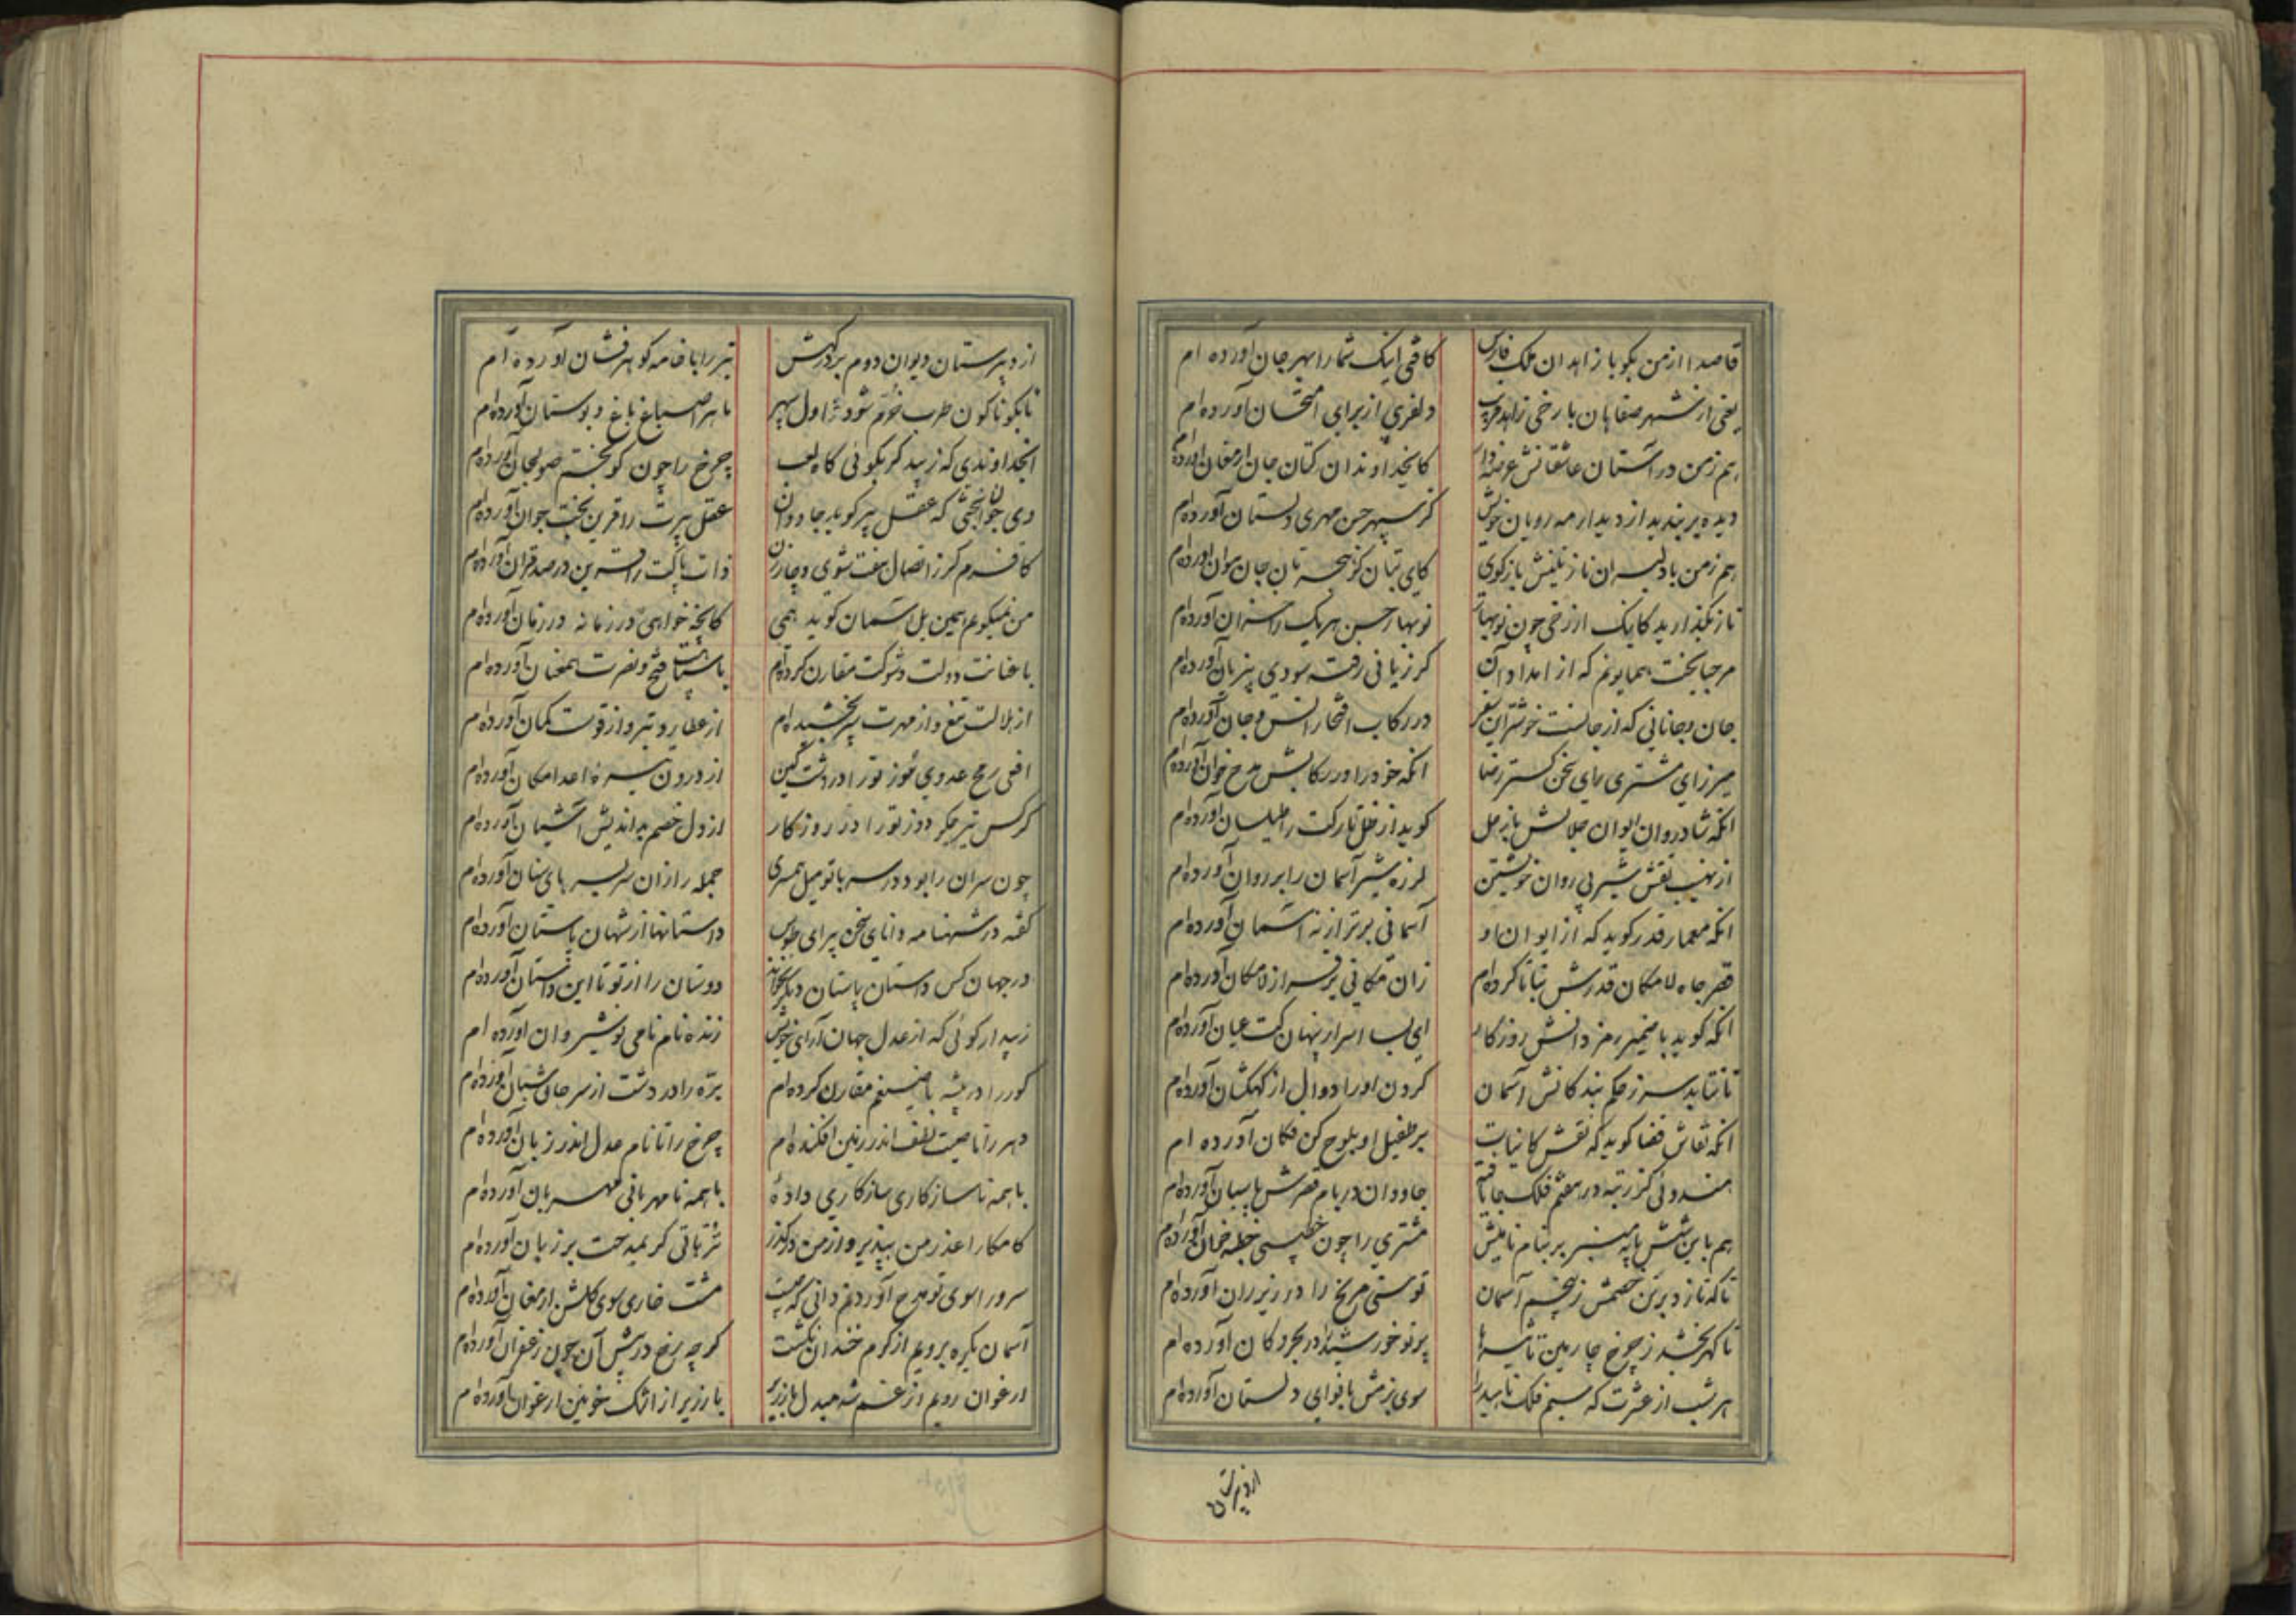 قاصدا از من بگو با زاهدان ملک فارس کافتی اینک شما را بهر جان آورده ام
یعنی از شهر صفاهان با رخی زاهد فریب دلفریبی از برای امتحان آورده ام
هم ز من در آستان عاشقانش عرضه دار کانخداوندان کتان جان ارمغان آورده ام
دیده بر بندید از دیدار مه رویان خویش کز سپهر حسن مهری دلستان آورده ام
هم ز من با دلبران نازنینش بازگوی کای بتان کز هجرتان جان
ناز نگذارید کاینک از رخی چون نوبهار نوبهار حسن هریک را خزان آورده ام
مرحبا بخت همایونم که از امداد آن گر زیانی رفت سودی بیزیان آورده ام
جان و جانانی که از جانست خوشتر این سفر در رکاب افتخار انس و جان آورده ام
میرزای مشتری رای سخن گستر رضا آنکه خود را در رکابش مدح خوان آورده ام
آنکه شادروان ایوان جلالش با زحل گوید از ظل تارکت را طیلسان آورده ام
از نهیب نقش شیر بی روان خویشتن لرزه شیر آسمان را بر روان آورده ام
آنکه معمار قدر گوید که از ایوان او آسمانی برتر از نه آسمان آورده ام
قصر جاه لامکان قدرش بنا تا کرده ام زان مکانی برتر از لامکان آورده ام
آنکه گوید با ضمیر رمز دانش روزگار ای بسا اسرار پنهان کت عیان آورده ام
تا نتابد سر ز حکم بندگانش آسمان گردن او را دوال از کهکشان آورده ام
آنکه نقاش قضا گوید که نقش کاینات بر طفیل او بلوح کن فکان آورده ام
هندوئی کز رتبه در هفتم فلک جا یافته جاودان در بام قصرش پاسبان آورده ام
هم باین شش پایه منبر بر بنام نامیش مشتری را چون خطیبی خطبه خوان آورده ام
تا که تازد بر تن خصمش ز پنجم آسمان توسنی مریخ را در زیر ران آورده ام
تا گهر بخشد ز چرخ چارمین تاثیرها پرتو خورشید را در بحر و کان آورده ام
هر شب از عشرت گه سیم فلک ناهید را سوی بزمش با نوای دلستان آورده ام
از دبیرستان
از دبیرستان دیوان دوم بر درگهش تیر را با خامه گوهر فشان آورده ام
تا بگوناگون طرب خرم شود ز اول سپهر ماهرا صباغ باغ و بوستان آورده ام
انخداوندی که زیبد گر بگوئی گاه لعب چرخ را چون گو بخم صولجان آورده ام
وی جوانبختی که عقل پیر گوید جاودان عقل پیرت را قرین بخت جوان آورده ام
کافرم گر ز اتصال هفت شوی و چار زن ذات پاکت را قرین در صد قران آورده ام
من نمیگویم همین بل آسمان گوید همی کانچه خواهی در زمانه در زمان آورده ام
با عنانت دولت و شوکت مقارن کرده ام با سپاهت فتح و نصرت همعنان آورده ام
از هلالت تیغ و از مهرت سپر بخشیده ام از عطارد تیر و از قوست کمان آورده ام
افعی رمح عدوی سوز تو را در دشت کین از درون سینه اعدا مکان آورده ام
کرکس تیر جگر دوز تو را در روزگار از دل خصم بداندیش آشیان آورده ام
چون سران را بود در سر با تو میل همسری جمله را زان سر بسر پای سنان آورده ام
گفته در شهنامه دانای سخن پیرای طوس داستانها از شهان باستان آورده ام
در جهان کس داستان باستان دیگر نخواند دوستان را از تو تا این داستان آورده ام
زیبد ار گوئی که از عدل جهان آرای خویش زنده نام نامی نوشیروان آورده ام
گور را در بیشه با ضیغم مقارن کرده ام بره را در دشت از سرحان شبان آورده ام
دهر را تا صیت لطف اندر زمین افکنده ام چرخ را تا نام عدل اندر زبان آورده ام
با همه ناسازکاری سازکاری داده با همه نامهربانی مهربان آورده ام
کامکارا عذر من بپذیر و از من درگذر ترهاتی گر بمدحت بر زبان آورده ام
سرورا سوی تو مدح آوردنم دانی که چیست مشت خاری سوی گلشن ارمغان آورده ام
آسمان یکره برویم از کرم خندان نگشت گرچه رخ در پیش آن چون زعفران آورده ام
ارغوان رویم از غم شد مبدل با زریر با زریر از اشک خونین ارغوان آورده ام